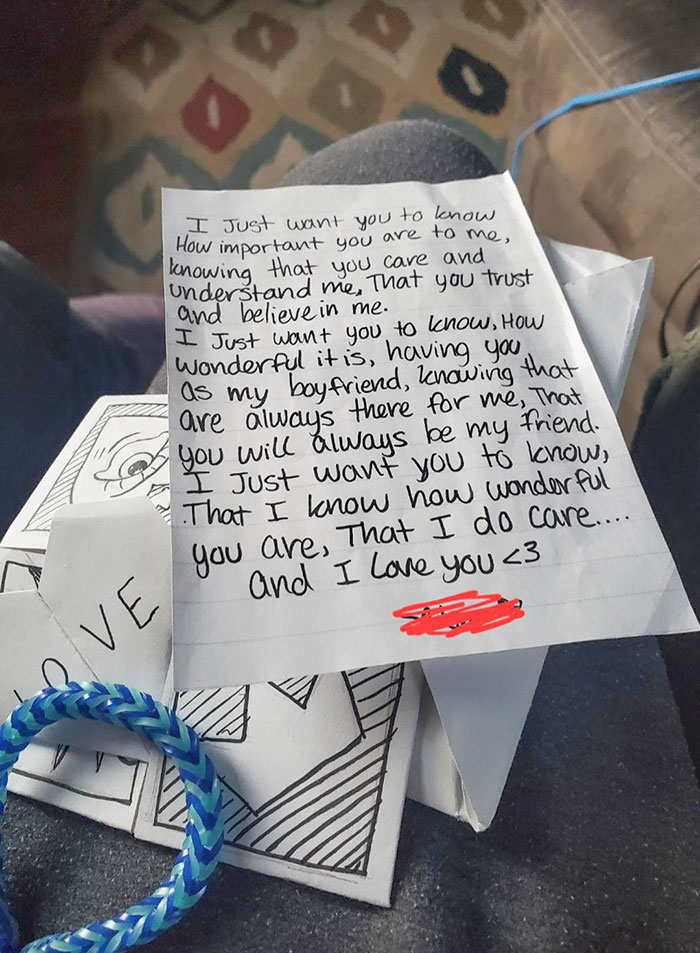 I Just want you to know
How important you are to me,
knowing that you care and
understand me, That you trust
and believe in me.
I Just want you to know, How
wonderful it is, having you
as my boyfriend, knowing that
are always there for me, That
you will always be my friend.
I Just want you to know,
That I know how wonderful
you are, That I do care....
and I Love you <3
LOVE